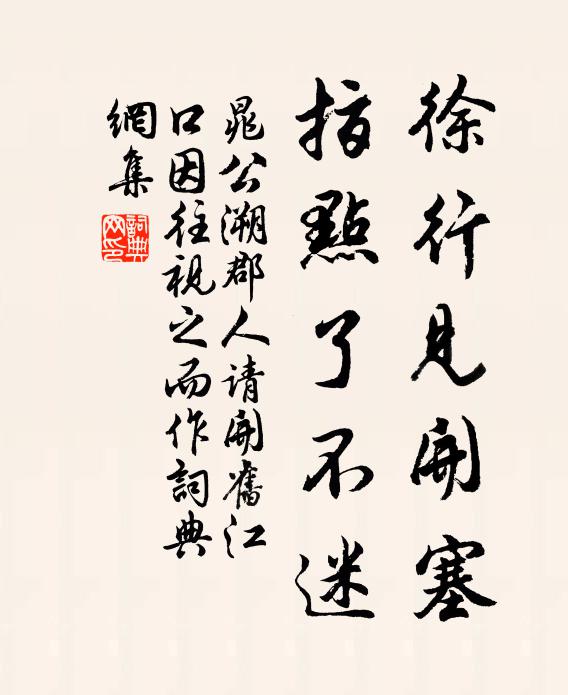 徐行見開塞
指點了不迷
晁公溯郡人請開舊江
口因往視之而作詞典
網集
詞典
網印